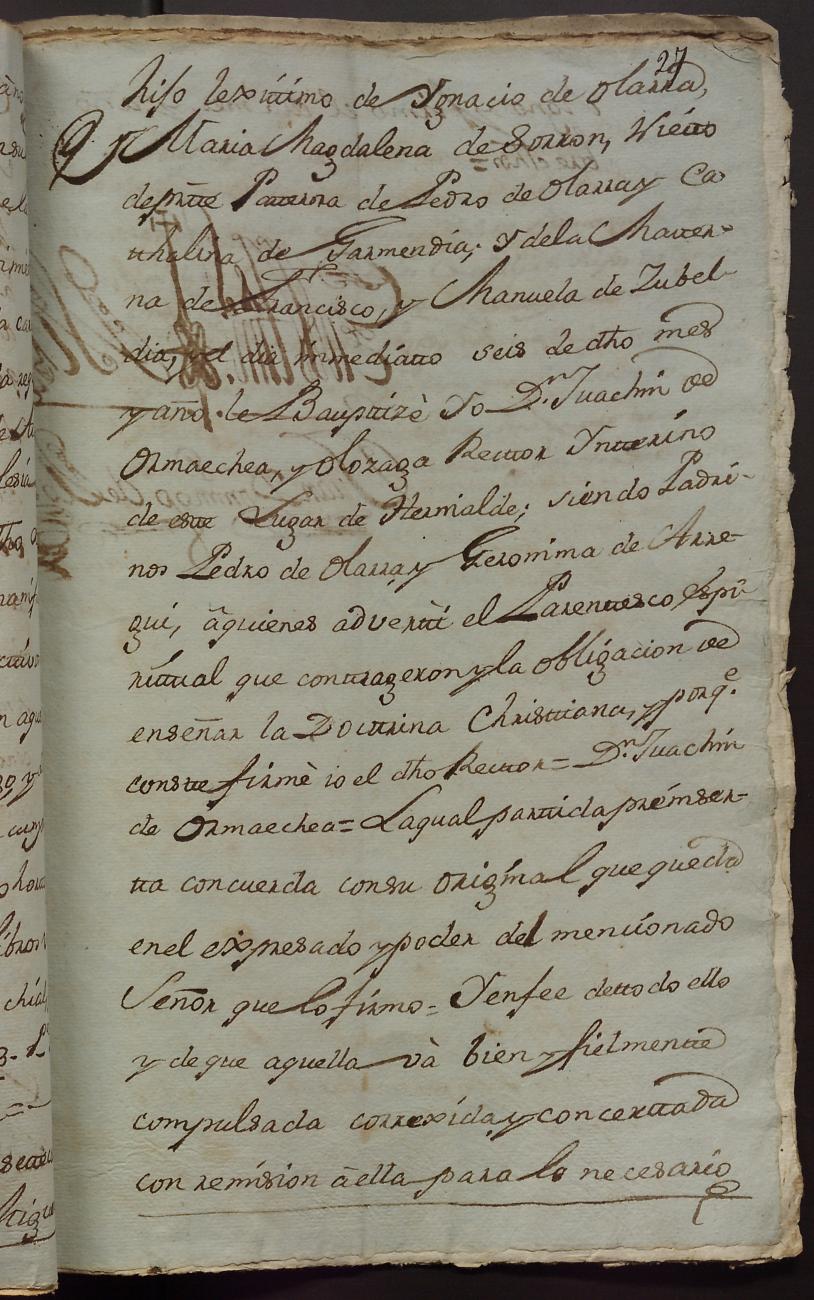 27
hijo lexittimo de Ygnacio de olarra,
y Maria Magdalena de Sorron, Nietto
de pñtte Patterna de Pedro de olarra y Ca
tthalina de Garmendia; y dela Matter-
na de Francisco, y Manuela de Zubel-
dia, y el dia immediatto seis de dho mes
y año le Bauptizè Yo Dn. Juachin de
Ormaechea, y olozaga Rector Yntterino
de estte Lugar de Hernialde; siendo Padri-
nos Pedro de olarra, y Geronima de Arre-
gui, àquienes adverttì el Parenttesco espi-
rittual que conttrageron y la obligacion de
enseñar la Docttrina Christtiana, y porqe.
constte firmè io el dho Rector= Dn. Juachin
de Ormaechea= Laqual parttida preinser-
tta concuerda consu original que queda
enel expresado y poder del mencionado
Señor que lo firmo= Yenfee detto do ello
y de que aquella và bien y fielmentte
compulsada correxida, y concerttada
con remision àella para lo necesario